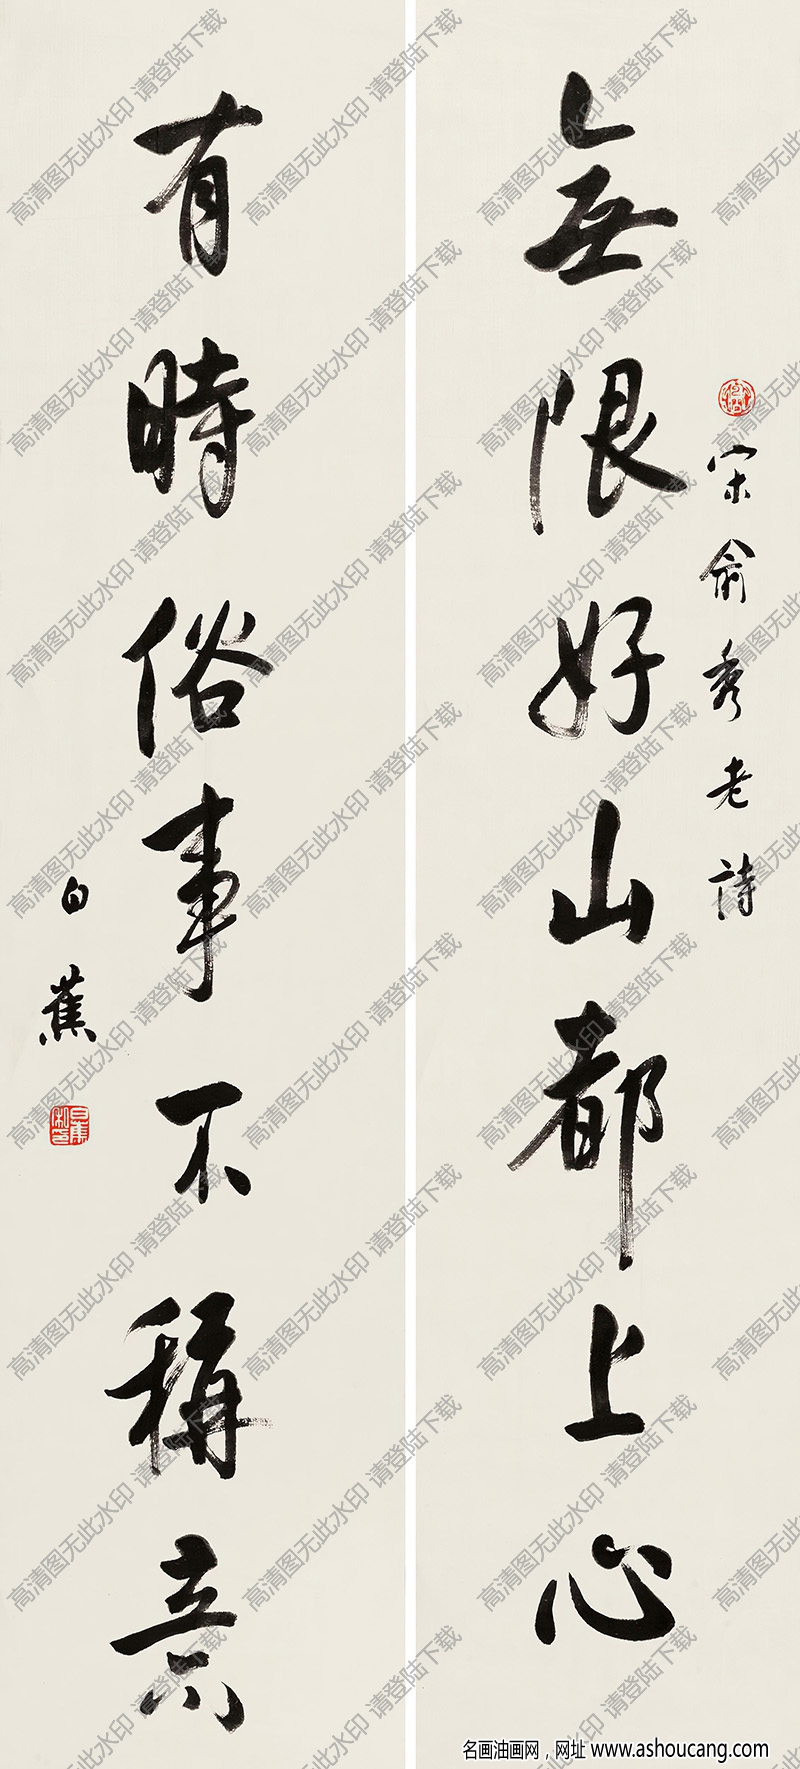 宋俞秀老詩
無限好山都上心
有時俗事不稱意
白蕉
白蕉私印
高清图无此水印 请登陆下载
名画油画网，网址 www.ashoucang.com